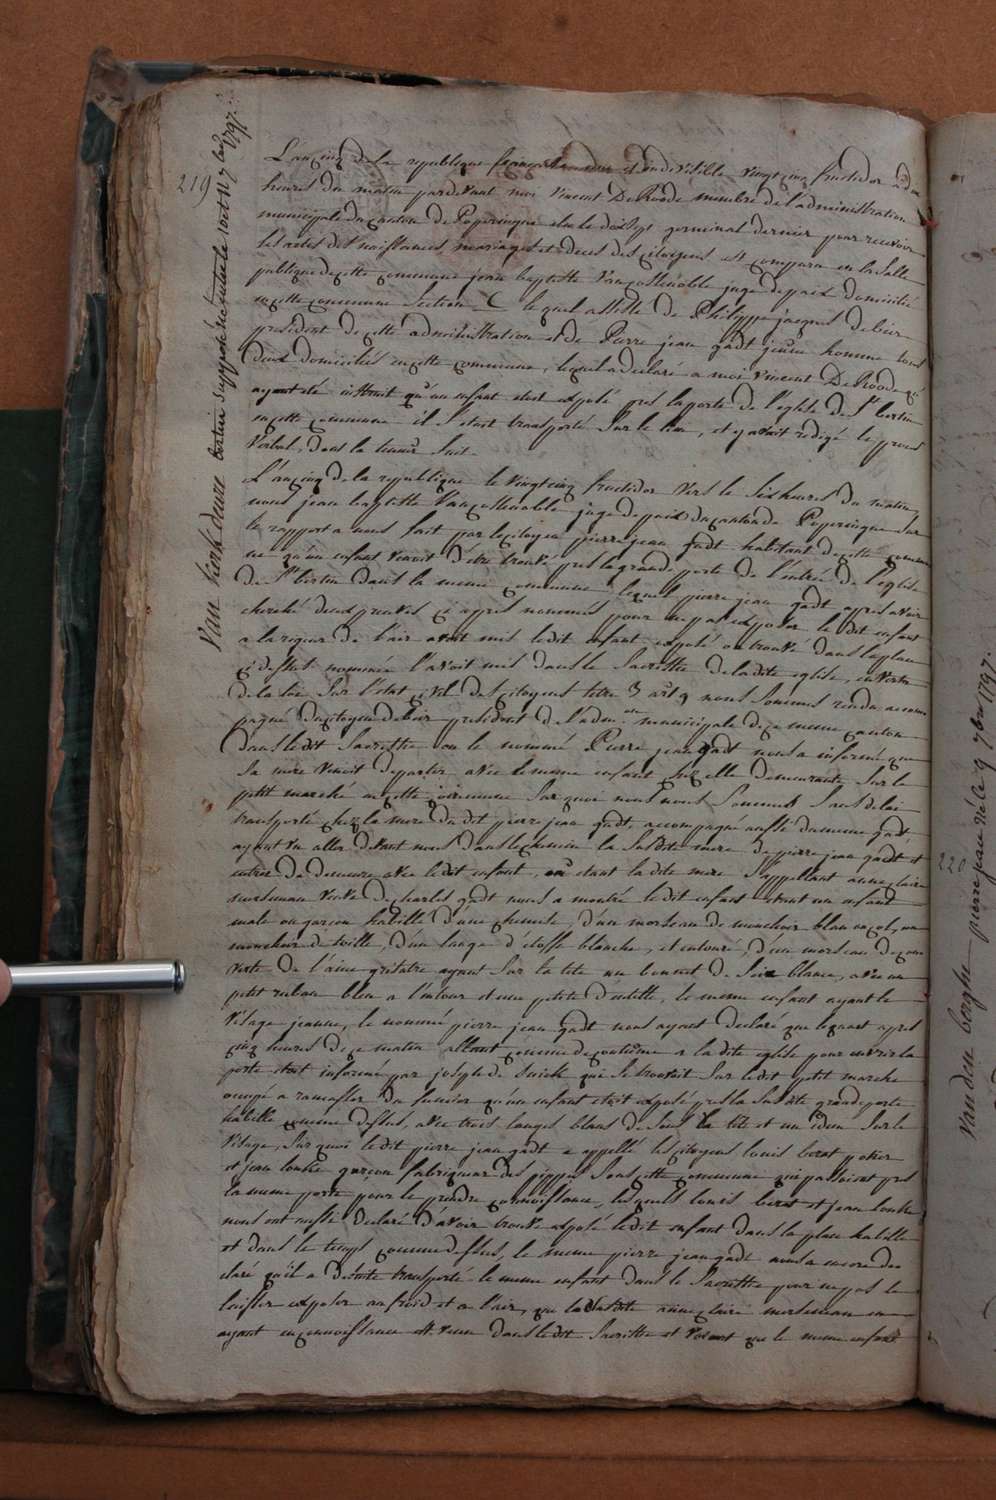 219
Van Kerkdeure bertin supposé né
L'an cinq de la republique française une et indivisible vingt cinq fructidor a dix
heures du matin pardevant moi Vincent DeRoode membre de l'administration
municipale du canton de Poperingue elu le dix sept germinal dernier pour recevoir
les actes des naissances mariages et deces des citoyens est comparu en la salle
publique de cette commune jean baptiste juge de paix domicilié
en cette commune section C lequel assisté de Philippe jacques de
president de cette administration et de Pierre jean gadt jeune homme tous
deux domiciliés en cette commune, lequel a declaré a moi Vincent DeRoode
ayant été instruit qu'un enfant etait exposé pres la porte de l'eglise de St bertin
en cette commune il s'etait transporté sur le lieu, et y avait redigé le proces
verbal, dont la teneur suit.
L'an cinq de la republique le vingt cinq fructidor vers le six heures du matin
nous jean baptiste juge de paix du canton de Poperingue sur
le rapport a nous fait par le citoyen pierre jean gadt habitant de cette commu-
ne qu'un enfant venait d'etre trouvé pres la grande porte de l'entrée de l'eglise
de St bertin dans la meme commune lequel pierre jean gadt apres avoir
cherché deux preuves ci apres nommés pour ne pas exposer le dit enfant
a la rigeur de l'air avoit mis le dit enfant exposé ou trouvé dans la place
ci dessus nommée l'avoit mis dans le Sacristie de la dite eglise, en vertu
de la loi sur l'etat civil des citoyens titre 3 art 9 nous sommes rendu accom
pagné du citoyen president de l'adm.on municipale de ce meme canton
dans le dit Sacristie ou le nommé Pierre jean gadt nous a informé que
sa mere venoit de partir avec le meme enfant chez elle demeurante sur le
petit marché en cette commune sur quoi nous nous sommes sans delai
transporté chez la mere du dit pierre jean gadt, accompagné aussi du meme gadt
ayant vu aller devant nous dans le chemin la susdite mere de pierre jean gadt et
entrer sa demeure avec le dit enfant, ou etant la dite mere s'appellant anne claire
veuve de charles gadt nous a montré le dit enfant etant un enfant
male ou garçon habillé d'une chemise, d'un morseau de mouchoir blan au col, un
mouchoir de toille, d'un lange d'etoffe blanche, et entouré, d'un morseau de
verte de laine grisatre ayant sur la tete un bonnet de soie blanc, avec un
petit ruban bleu a l'entour et une petite dentelle, le meme enfant ayant le
visage jeaune, le nommé pierre jean gadt nous ayant declaré que le quart apres
cinq heures de ce matin allant comme de coutume a la dite eglise pour ouvrir la
porte etant informé par joseph de qui se trouvait sur le dit petit marché
occupé a ramasser du fumier qu'un enfant etait exposé pres la susdite grande porte
habillé comme dessus, avec trois langes blans dessous la tete et un idem sur le
visage, sur quoi le dit pierre jean gadt a appellé les citoyens louis potier
et jean garçon fabriqueur des pippes sous cette commune qui passoient pres
la meme porte pour le prendre connoissance, lesquels louis et jean
nous ont aussi declaré d'avoir trouvé exposé le dit enfant dans la place habillé
et dans le temps comme dessus, le meme pierre jean gadt nous a encore de
claré qu'il a de suite transporté le meme enfant dans le Sacristie pour ne pas le
laisser exposer au froid et a l'air, que la susdite anne claire en
ayant eu connoissance est venu dans le dit Sacristie et voiant que le meme enfant
220
Van den berghe pierre jean né le 9 7bre 1797.